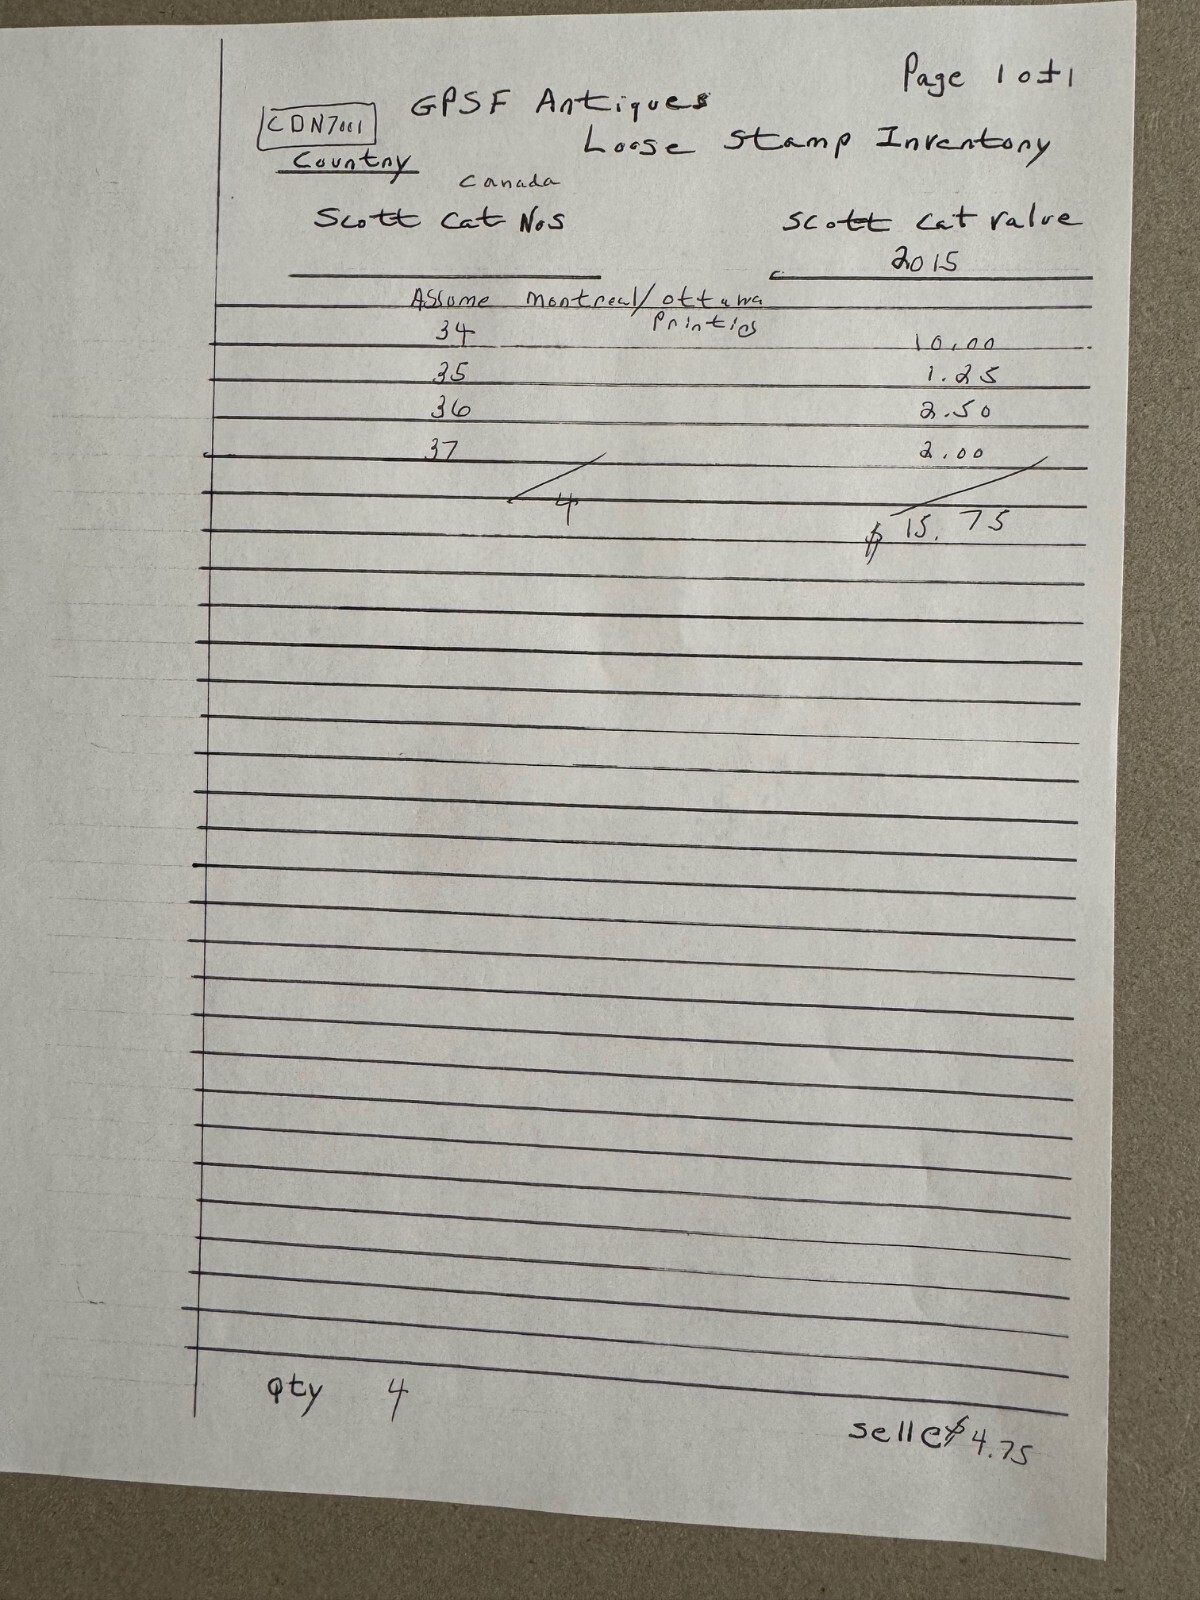 Page 1 of 1
GPSF Antiques
CDN7001
Loose Stamp Inventory
Country
Canada
Scott Cat Nos
Scott Cat Value
2015
Assume Montreal/Ottawa
34 10.00
35 1.25
36 2.50
37 2.00
4 $ 15.75
Qty 4
Sell @ $4.75